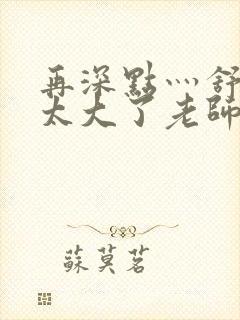 再深點灬舒
太大了老師
蘇莫茗